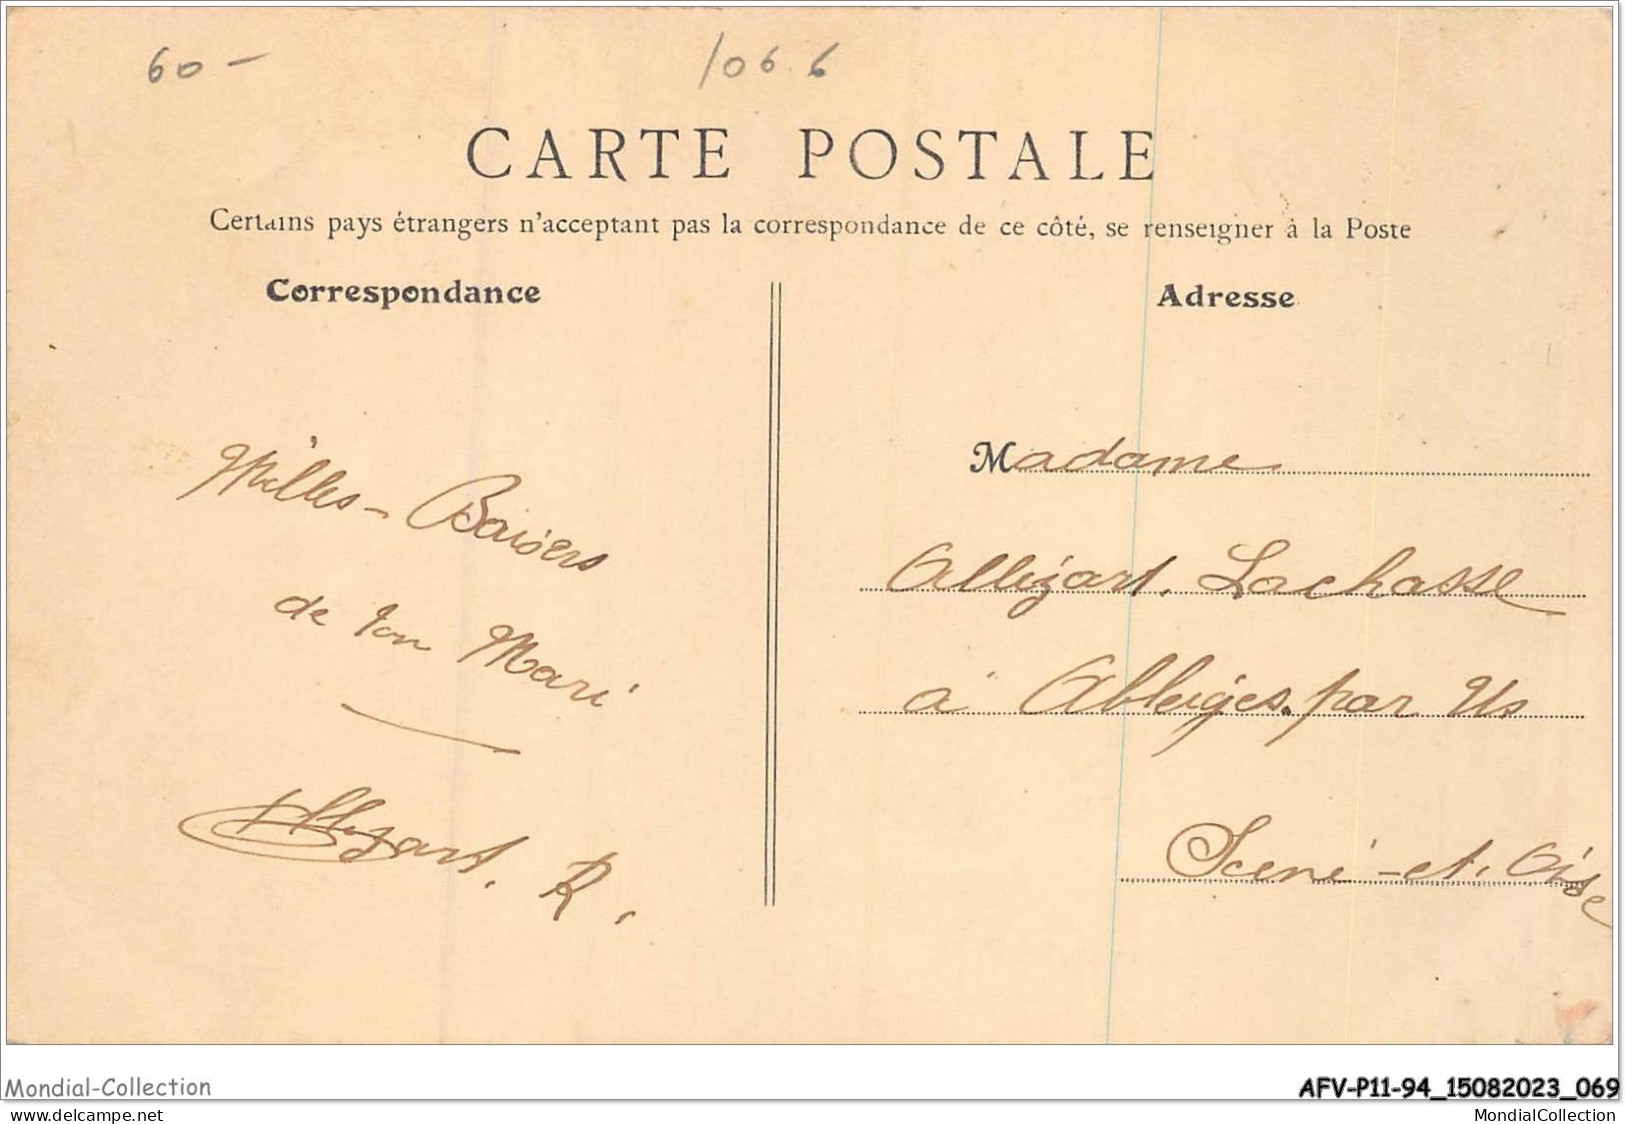 60 -
1066
CARTE POSTALE
Certains pays étrangers n'acceptant pas la correspondance de ce côté, se renseigner à la Poste
Correspondance
Adresse
Milles - Baisers
de ton Mari
Allizart. R.
Madame
Allizart. Lachasse
à Ableiges. par Us
Seine-et-Oise
Mondial-Collection
AFV-P11-94_15082023_069
www.delcampe.net
MondialCollection